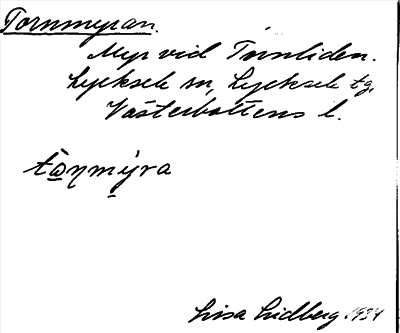 Tornmyran.
Myr vid Tornliden.
Lycksele sn, Lycksele tg.
Västerbottens l.
tò̱ṇmy̱ra
Lisa Lidberg 1934